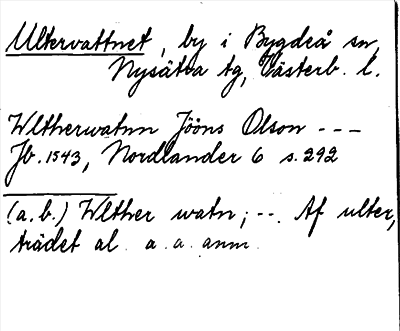 Ultervattnet, by i Bygdeå sn,
Nysätra tg, Västerb. l.
Wltherwatnn Jööns Olson ---
Jb. 1543, Nordlander 6 s. 292
(a.b.) Wlther watn; --. Af ulter,
trädet al. a. a. anm.